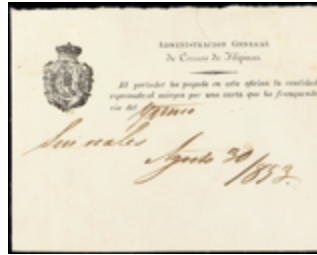 ADMINISTRACION GENERAL
de Correos de Filipinas.
El portador ha pagado en esta oficina la cantidad
espresada al márgen por una carta que ha franqueado
ria del
Seis reales
Agosto 30/1853.